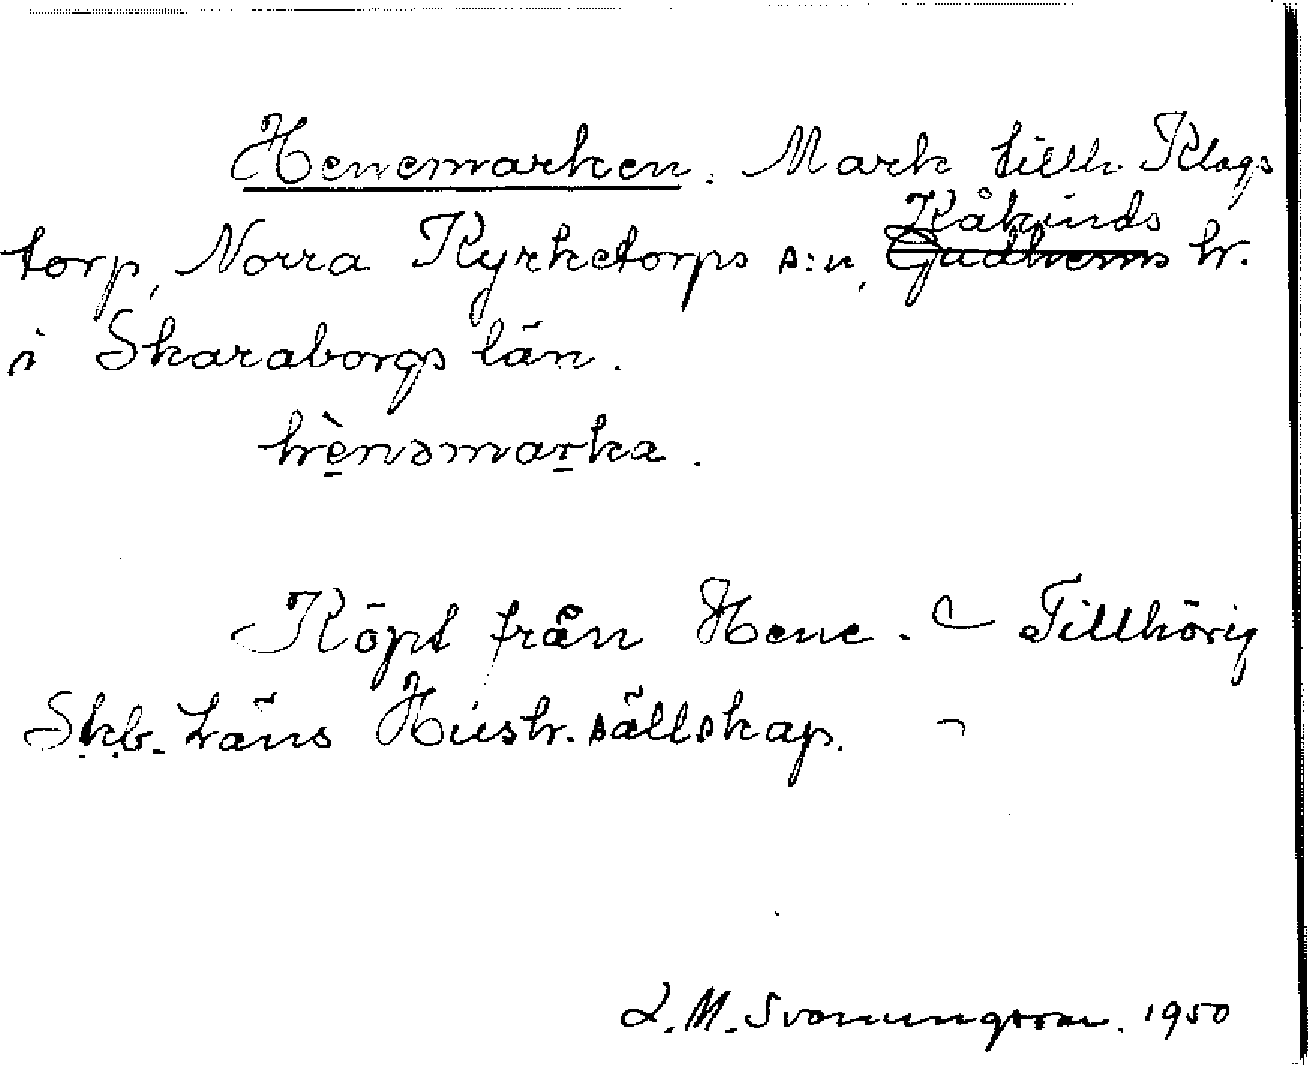 Henemarken. Mark tillh. Klags
torp, Norra Kyrketorps s:n, Kåkinds ~~Gudhems~~ hr.
i Skaraborgs län.
hènəmarka.
Köpt från Hene. Tillhörig
Skb. Läns Hush. sällskap.
L. M. Svanungsson. 1950